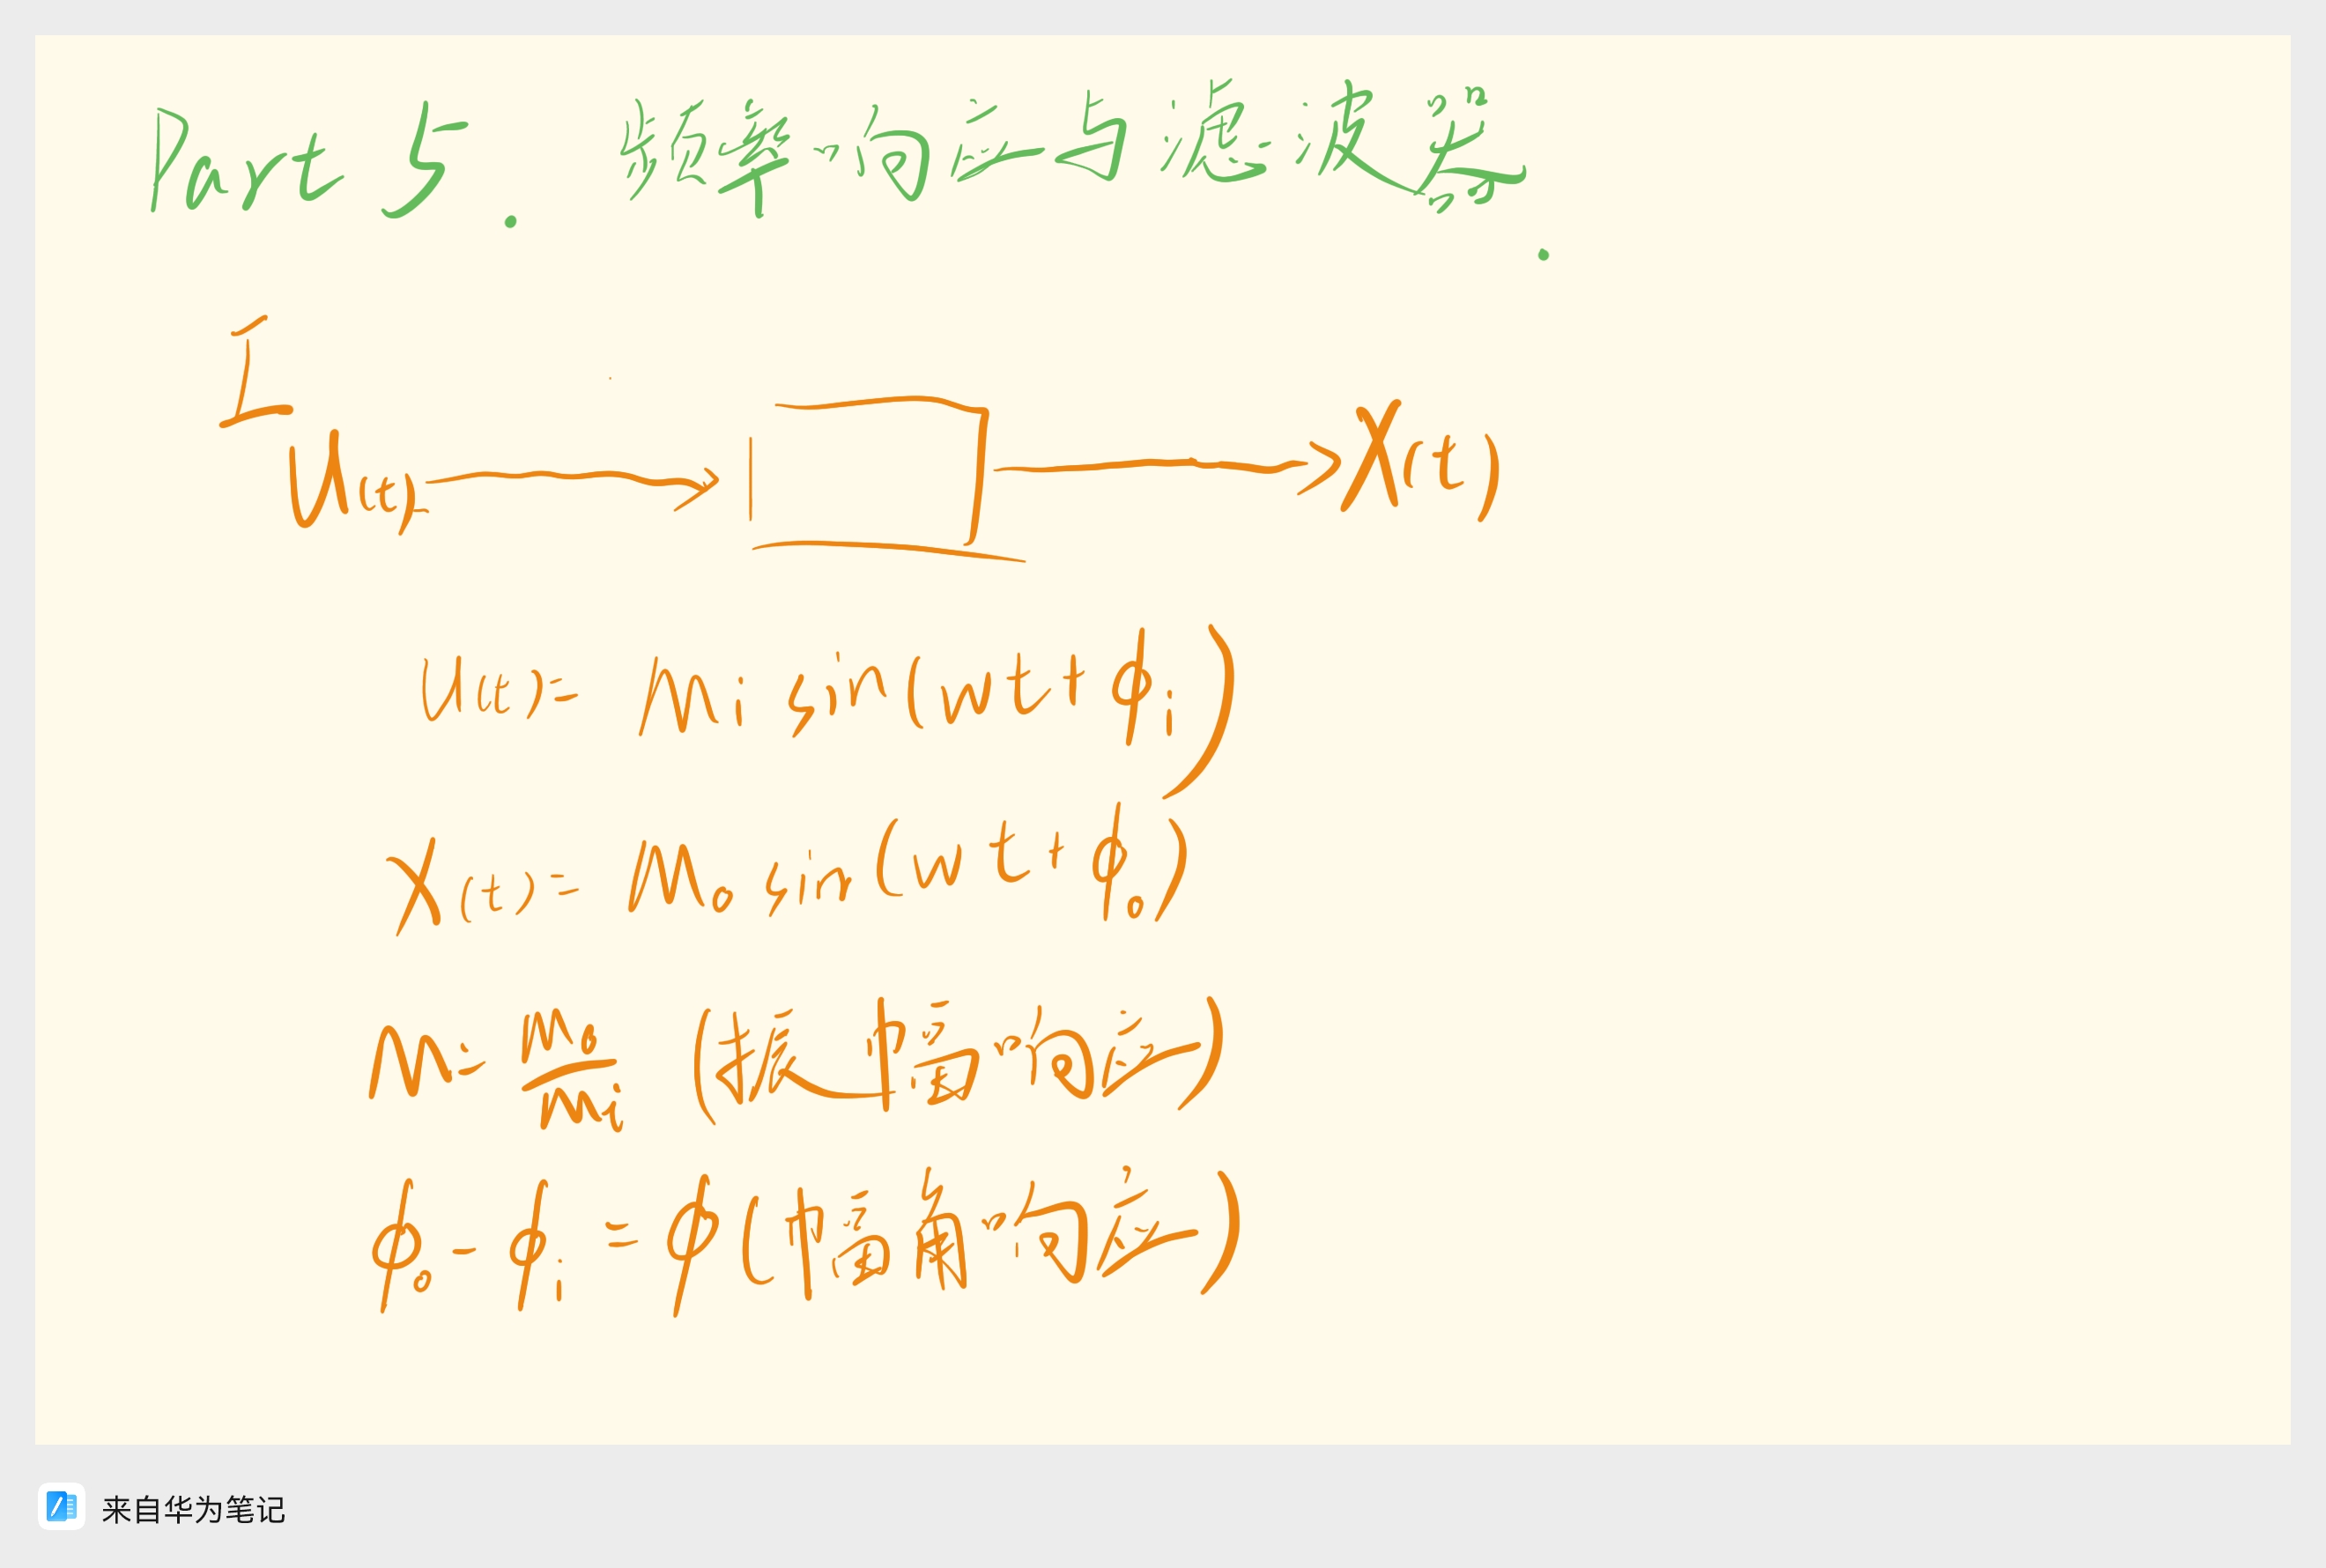 Part 5. 频率响应与滤波器.
I
U(t) → X(t)
U(t) = Mi sin(wt + ϕi)
X(t) = Mo sin(wt + ϕo)
M = Mo/Mi (振幅响应)
ϕo - ϕi = ϕ (幅角响应)
来自华为笔记